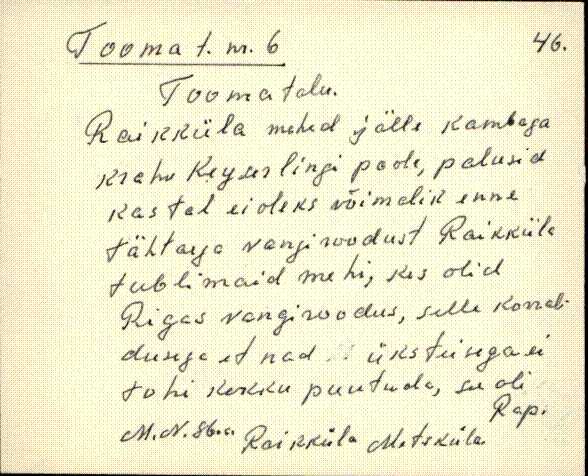 Tooma t. nr. 6 46.
Toomatalu.
Raikküla mehed jälle kambaga
krahv Keyserlingi poole, palusid
kas tal ei oleks võimalik enne
tähtaega vangiroodust Raikküla
tublimaid mehi, kes olid
Rigas vangiroodus, selle korral-
dusega et nad üksteisega ei
tohi kokku puutuda, see oli
Rap.
M.N. 86.a. Raikküla Metsküla